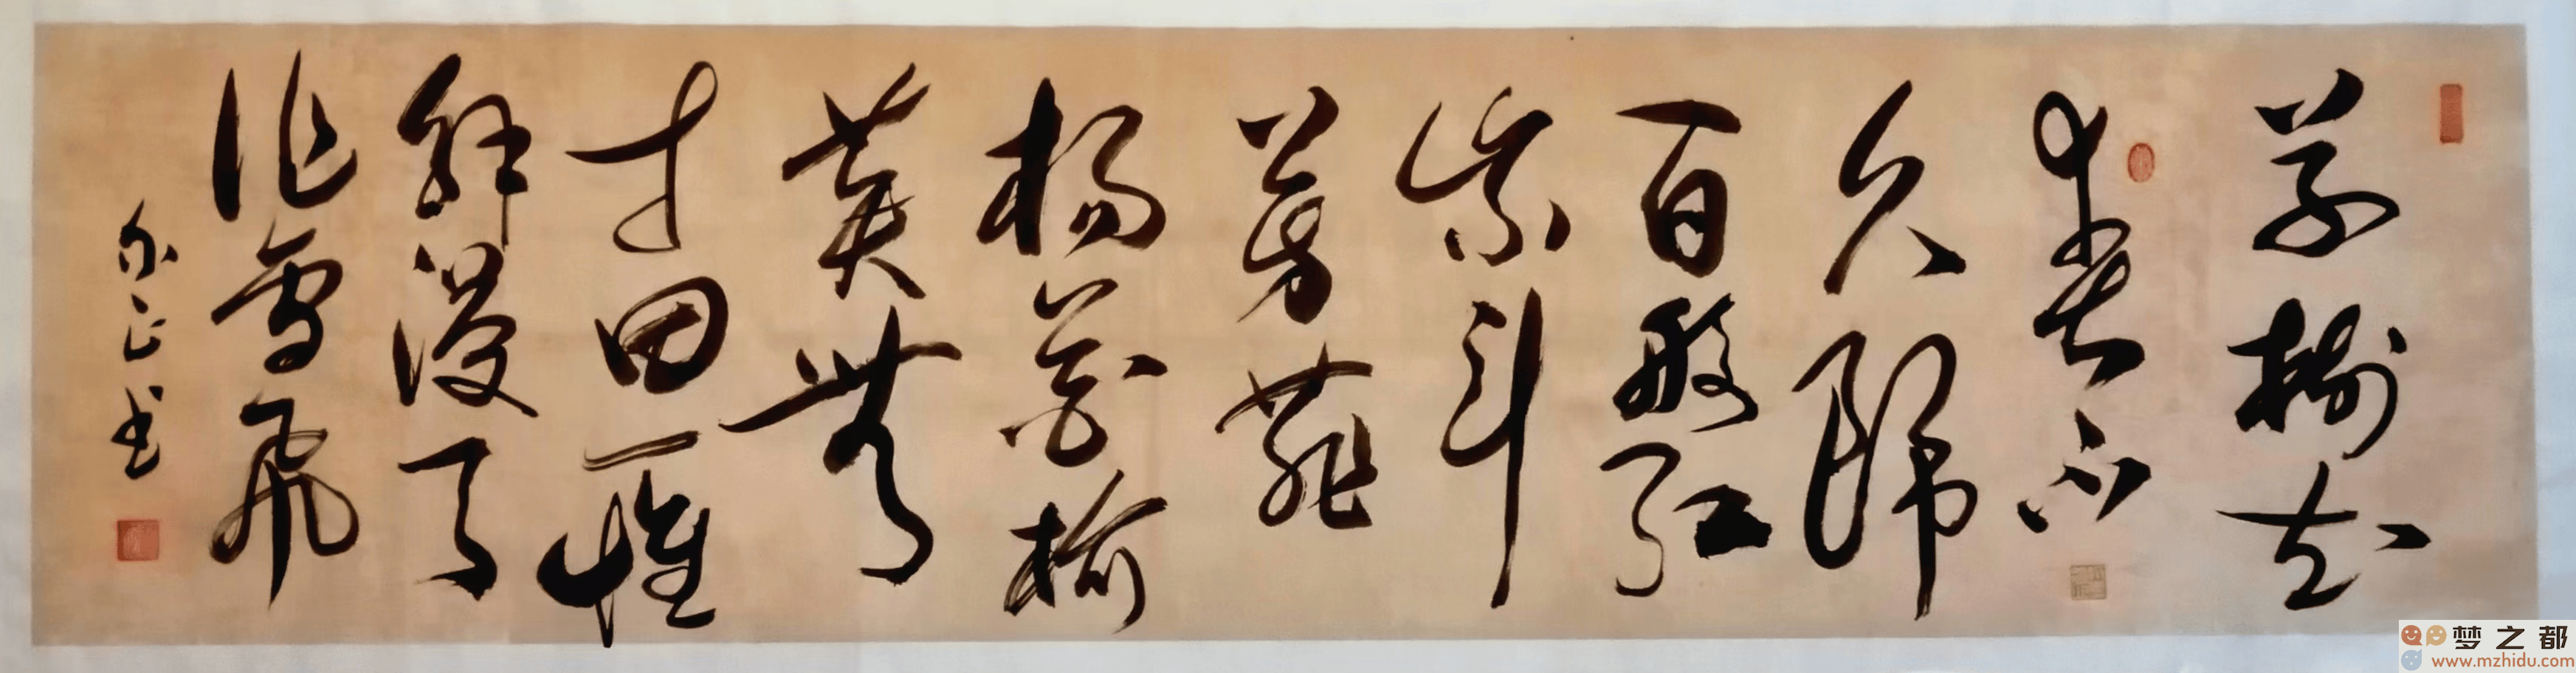 草樹知
春不
久歸
百般紅
紫斗
芳菲
楊花榆
莢無
才思惟
解漫天
作雪飛
正書
梦之都
www.mzhidu.com